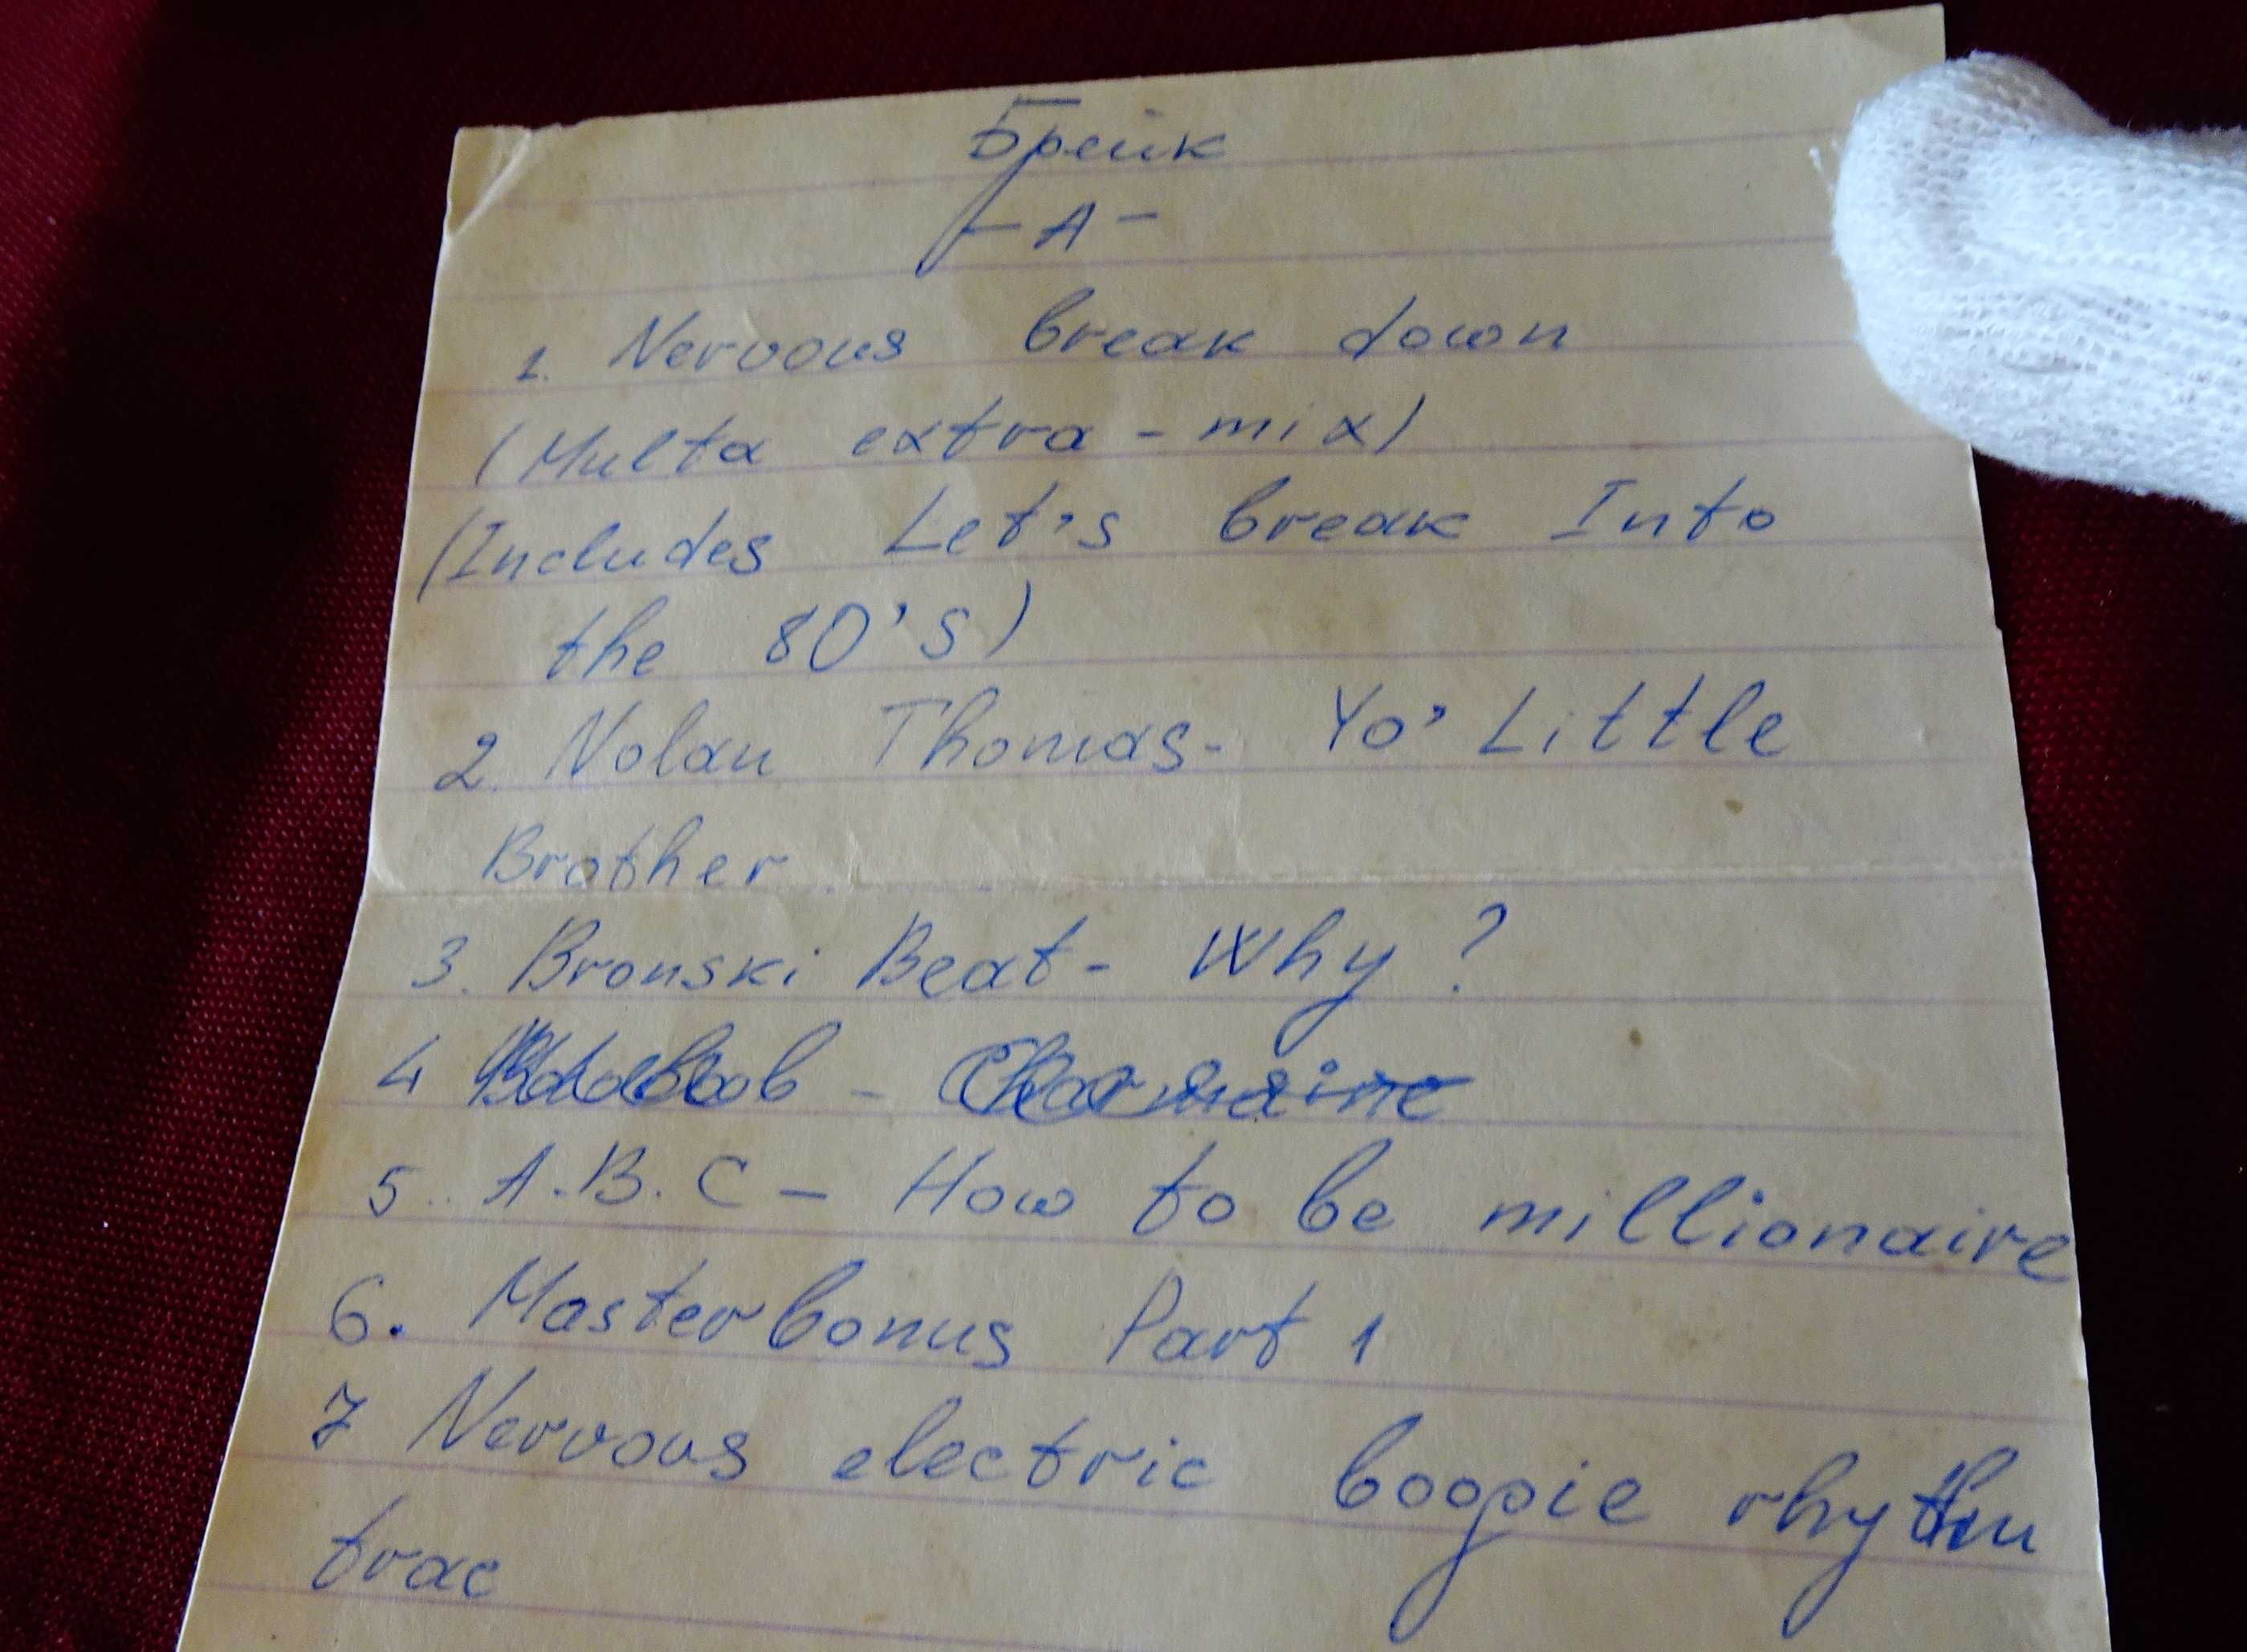 Брейк
- А -
1. Nervous break down
(Multa extra - mix)
(Includes Let's break Into
the 80's)
2. Nolan Thomas - Yo' Little
Brother.
3. Bronski Beat - Why?
4 - Charmaine
5. A.B.C - How to be millionaire
6. Masterbonus Part 1
7 Nervous electric boogie rhythm
trac